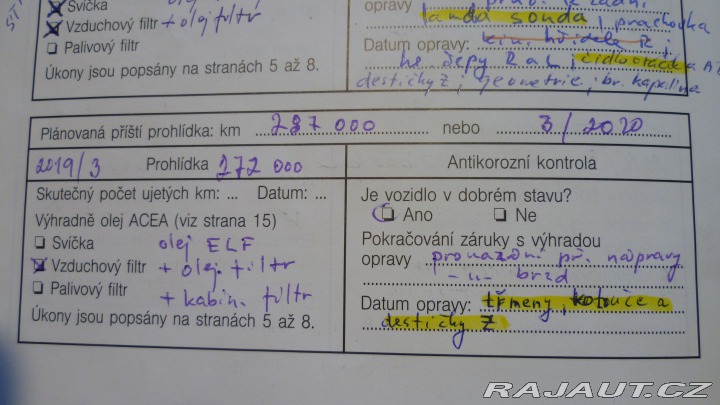 Svíčka
Vzduchový filtr + olej filtr
Palivový filtr
Úkony jsou popsány na stranách 5 až 8.
opravy
lamda sonda, prachovka
Datum opravy:
he čepy 2 a 1, čidlo otáček a A
destičky Z, geometrie, br. kapalina
Plánovaná příští prohlídka: km 287 000 nebo 3/2020
2019/3 Prohlídka 272 000
Antikorozní kontrola
Skutečný počet ujetých km: ... Datum: ...
Výhradně olej ACEA (viz strana 15)
Svíčka olej ELF
Vzduchový filtr + olej. filtr
Palivový filtr + kabin. filtr
Úkony jsou popsány na stranách 5 až 8.
Je vozidlo v dobrém stavu?
Ano Ne
Pokračování záruky s výhradou
opravy provazdní př. nápravy
-u- brzd
Datum opravy: třmeny, kotouče a
destičky Z
RAJAUT.CZ